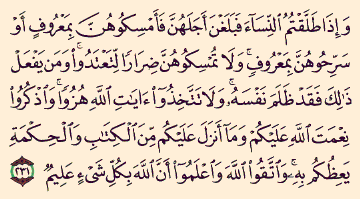 وَإِذَا طَلَّقْتُمُ ٱلنِّسَآءَ فَبَلَغْنَ أَجَلَهُنَّ فَأَمْسِكُوهُنَّ بِمَعْرُوفٍ أَوْ
سَرِّحُوهُنَّ بِمَعْرُوفٍ ۚ وَلَا تُمْسِكُوهُنَّ ضِرَارًا لِّتَعْتَدُوا۟ ۚ وَمَن يَفْعَلْ
ذَٰلِكَ فَقَدْ ظَلَمَ نَفْسَهُۥ ۚ وَلَا تَتَّخِذُوٓا۟ ءَايَٰتِ ٱللَّهِ هُزُوًا ۚ وَٱذْكُرُوا۟
نِعْمَتَ ٱللَّهِ عَلَيْكُمْ وَمَآ أَنزَلَ عَلَيْكُم مِّنَ ٱلْكِتَٰبِ وَٱلْحِكْمَةِ
يَعِظُكُم بِهِۦ ۚ وَٱتَّقُوا۟ ٱللَّهَ وَٱعْلَمُوٓا۟ أَنَّ ٱللَّهَ بِكُلِّ شَىْءٍ عَلِيمٌ ٢٣١